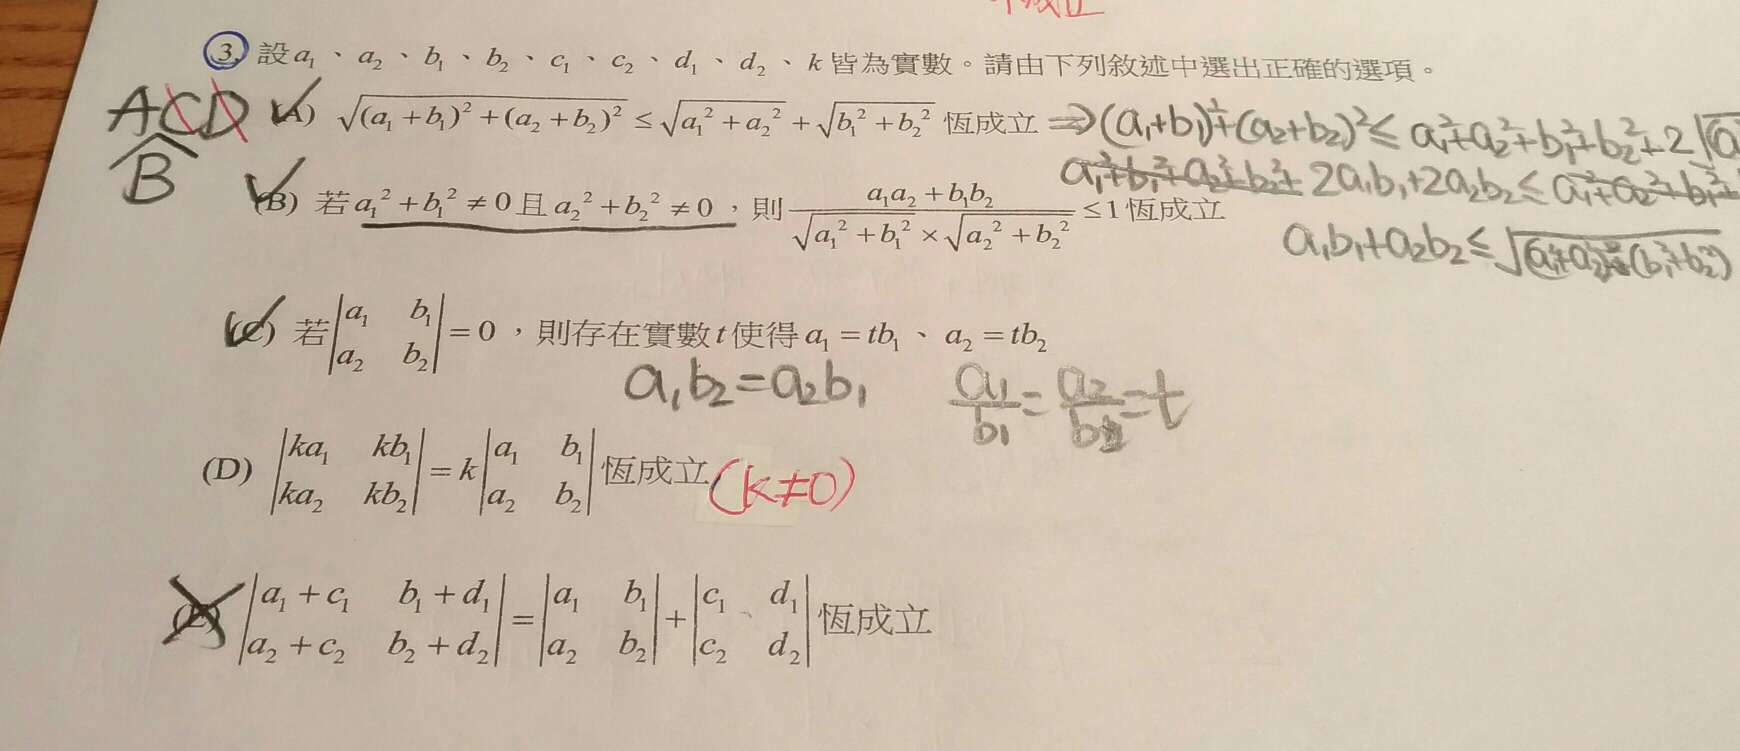 3. 設 a₁、a₂、b₁、b₂、c₁、c₂、d₁、d₂、k 皆為實數。請由下列敘述中選出正確的選項。
ACD
B
(A) √((a₁+b₁)²+(a₂+b₂)²) ≤ √(a₁²+a₂²) + √(b₁²+b₂²) 恆成立 ⇒ (a₁+b₁)²+(a₂+b₂)² ≤ a₁²+a₂²+b₁²+b₂²+2√(a
a₁²+b₁²+a₂²+b₂²+ 2a₁b₁+2a₂b₂ ≤ a₁²+a₂²+b₁²+
(B) 若 a₁²+b₁² ≠ 0 且 a₂²+b₂² ≠ 0,則 (a₁a₂+b₁b₂)/(√(a₁²+b₁²) × √(a₂²+b₂²)) ≤ 1 恆成立
a₁b₁+a₂b₂ ≤ √((a₁²+a₂²)(b₁²+b₂²))
(C) 若 |a₁ b₁; a₂ b₂| = 0,則存在實數 t 使得 a₁ = tb₁、a₂ = tb₂
a₁b₂=a₂b₁ a₁/b₁ = a₂/b₂ = t
(D) |ka₁ kb₁; ka₂ kb₂| = k |a₁ b₁; a₂ b₂| 恆成立 (k≠0)
(E) |a₁+c₁ b₁+d₁; a₂+c₂ b₂+d₂| = |a₁ b₁; a₂ b₂| + |c₁ d₁; c₂ d₂| 恆成立